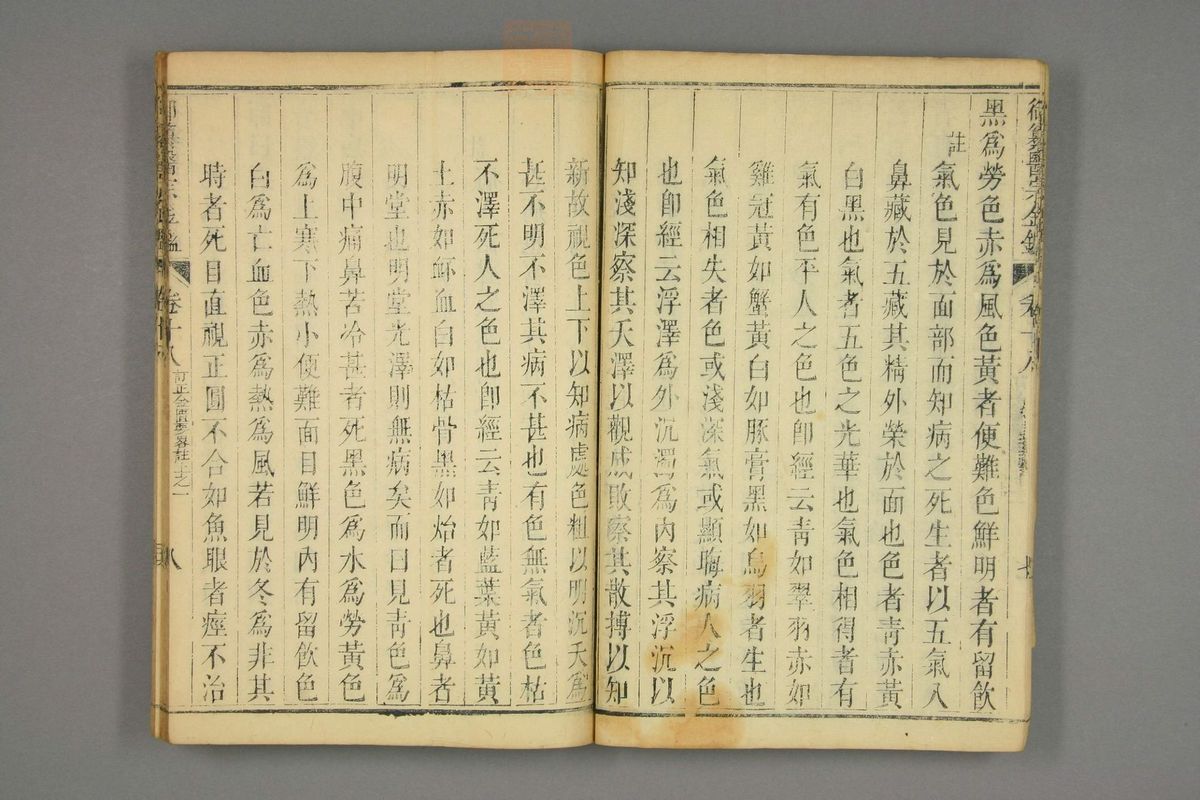 御纂醫宗金鑑
黑爲勞色赤爲風色黃者便難色鮮明者有留飲
註
氣色見於面部而知病之死生者以五氣入
鼻藏於五藏其精外榮於面也色者靑赤黃
白黑也氣者五色之光華也氣色相得者有
氣有色平人之色也卽經云靑如翠羽赤如
雞冠黃如蟹黃白如豚膏黑如烏羽者生也
氣色相失者色或淺深氣或顯晦病人之色
也卽經云浮澤爲外沉濁爲內察其浮沉以
知淺深察其夭澤以觀成敗察其散摶以知
新故視色上下以知病處色粗以明沉夭爲
甚不明不澤其病不甚也有色無氣者色枯
不澤死人之色也卽經云靑如藍葉黃如黃
土赤如衃血白如枯骨黑如炲者死也鼻者
明堂也明堂光澤則無病矣而曰見靑色爲
腹中痛鼻苦冷甚者死黑色爲水爲勞黃色
爲上寒下熱小便難面目鮮明內有留飲色
白爲亡血色赤爲熱爲風若見於冬爲非其
時者死目直視正圓不合如魚眼者痙不治
御纂醫宗金鑑
卷十八
訂正金匱要畧註之一
八